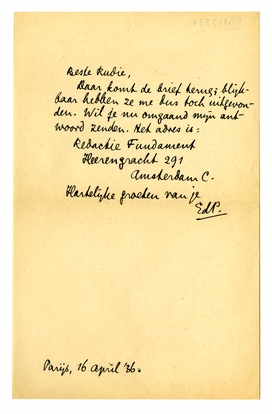 Beste Rudie,
Daar komt de brief terug; blijk-
baar hebben ze me dus toch uitgevon-
den. Wil je nu omgaand mijn ant-
woord zenden. Het adres is:
Redactie Fundament
Heerengracht 291
Amsterdam C.
Hartelijke groeten van je
EdP.
Parijs, 16 april '36.